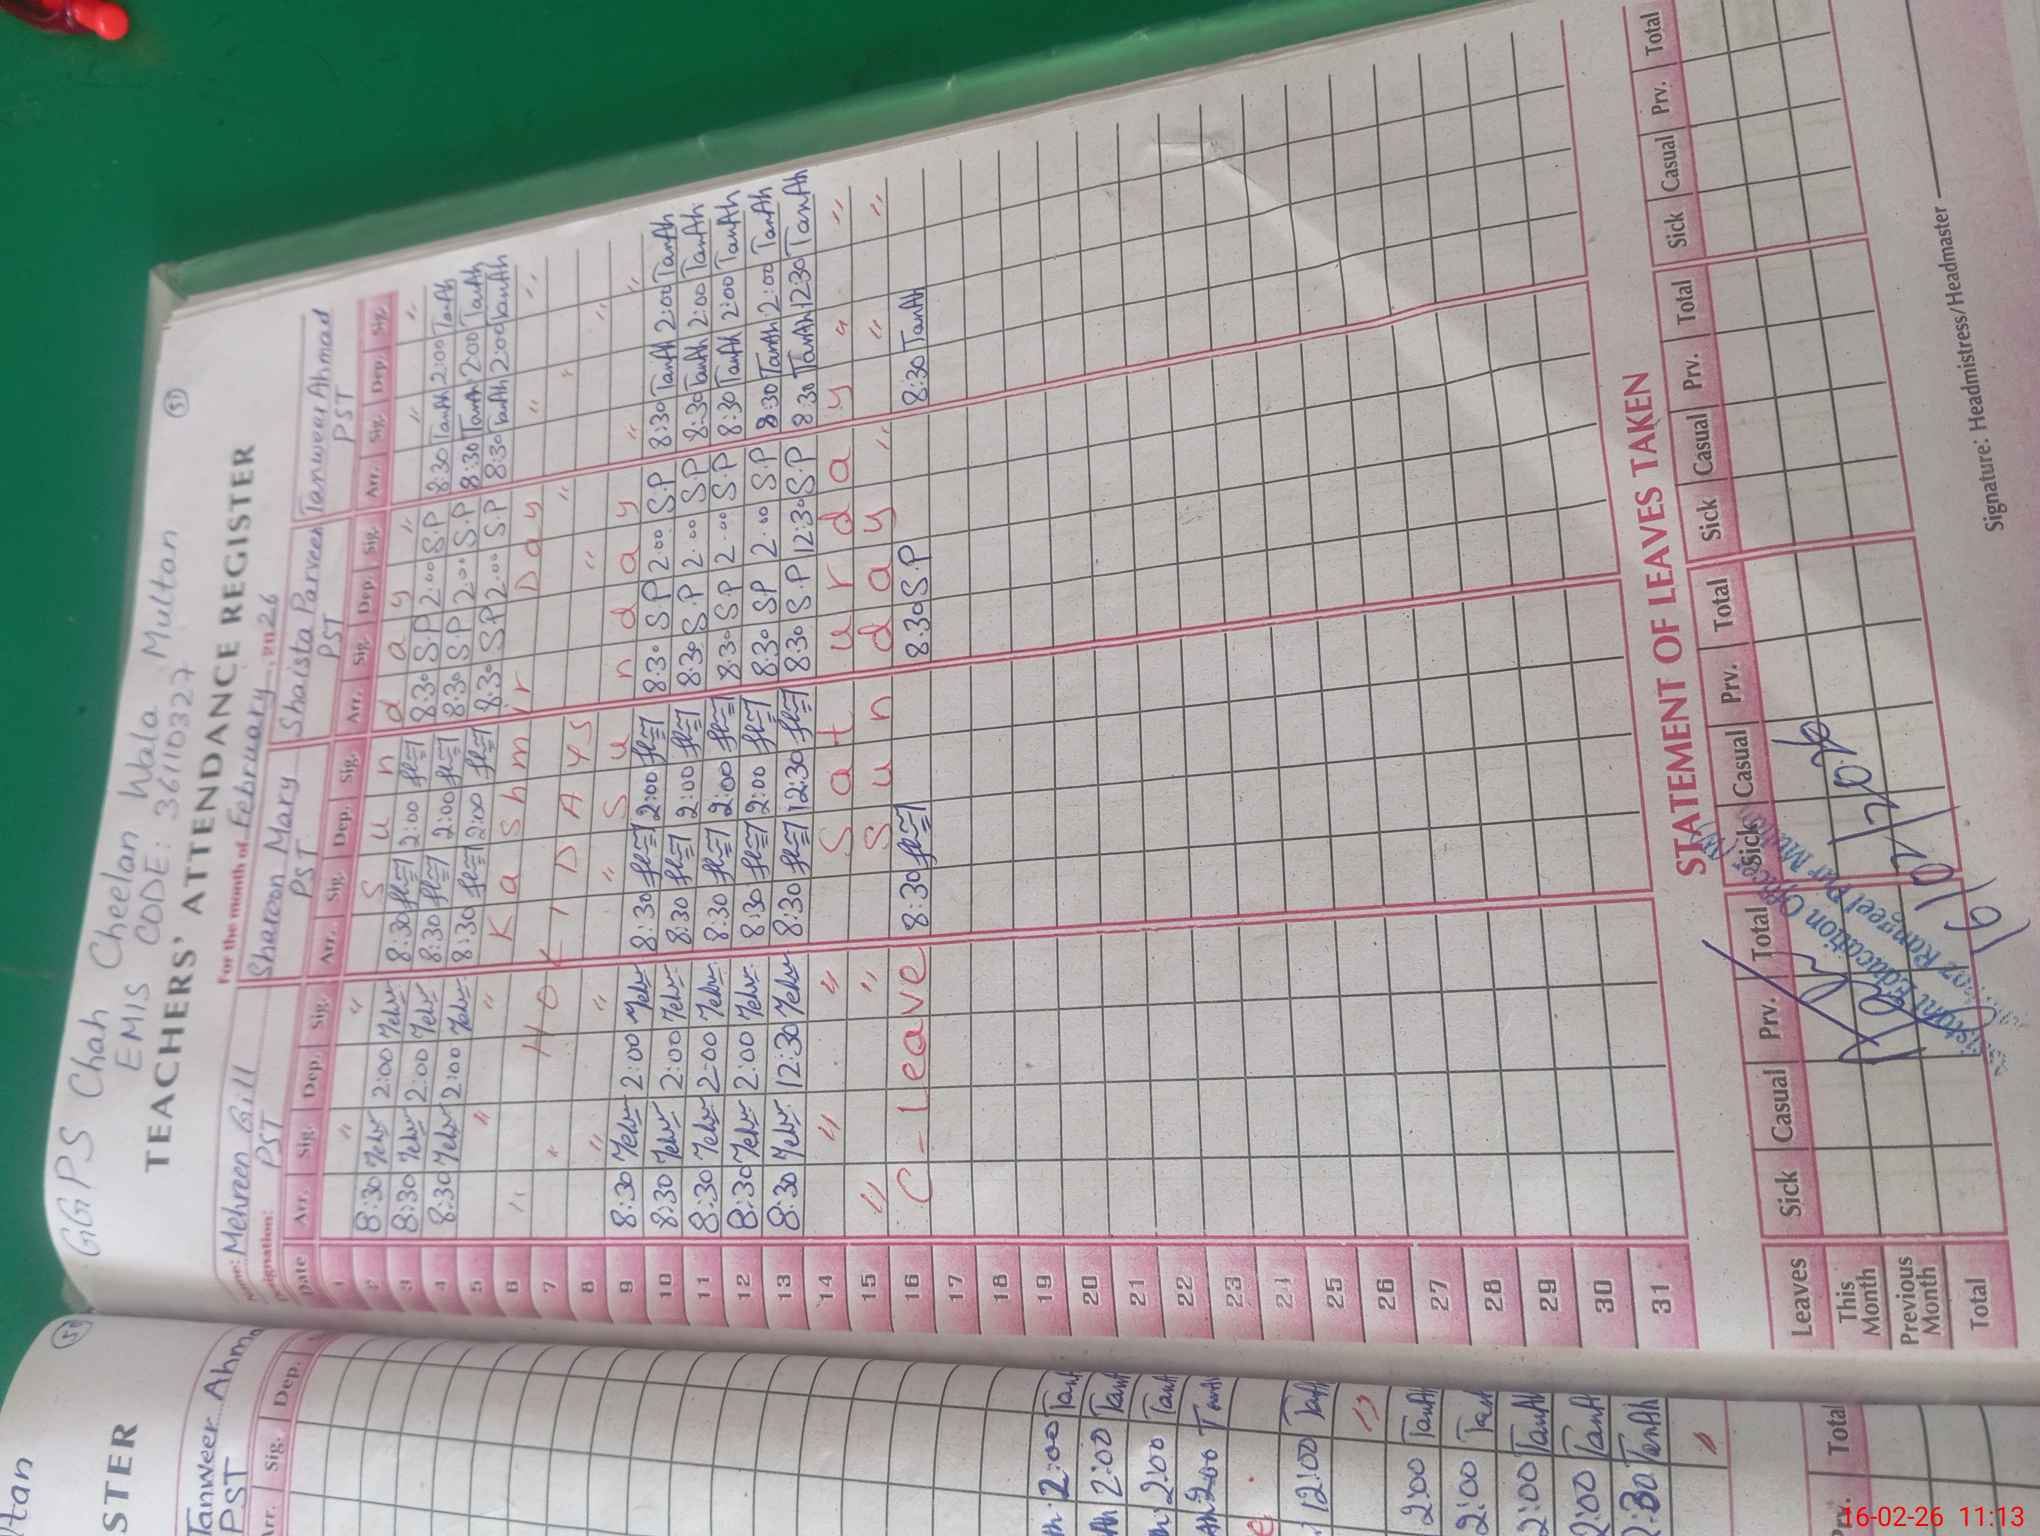 GGPS Chah Cheelan Wala Multan
EMIS CODE: 36110327
51
TEACHERS' ATTENDANCE REGISTER
For the month of February, 2026
Name: Mehreen Gill Shareen Mary Shaista Parveen Tanweer Ahmad
Designation: PST PST PST PST
Date Arr. Sig. Dep. Sig. Arr. Sig. Dep. Sig. Arr. Sig. Dep. Sig. Arr. Sig. Dep. Sig.
1 " " S u n d a y " " "
2 8:30 2:00 8:30 2:00 8:30 S.P 2:00 S.P 8:30 TanAh 2:00 TanAh
3 8:30 2:00 8:30 2:00 8:30 S.P 2:00 S.P 8:30 TanAh 2:00 TanAh
4 8:30 2:00 8:30 2:00 8:30 SP 2:00 S.P 8:30 TanAh 2:00 TanAh
5 " " K a s h m i r D a y " "
6 "
7 " H O L I D A Y S " "
8 " " " S u n d a y " "
9 8:30 2:00 8:30 2:00 8:30 SP 2:00 S.P 8:30 TanAh 2:00 TanAh
10 8:30 2:00 8:30 2:00 8:30 S.P 2:00 S.P 8:30 TanAh 2:00 TanAh
11 8:30 2:00 8:30 2:00 8:30 S.P 2:00 S.P 8:30 TanAh 2:00 TanAh
12 8:30 2:00 8:30 2:00 8:30 SP 2:00 S.P 8:30 TanAh 2:00 TanAh
13 8:30 12:30 8:30 12:30 8:30 S.P 12:30 S.P 8:30 TanAh 1230 TanAh
14 " " S a t u r d a y " "
15 " " S u n d a y " " "
16 C - Leave 8:30 8:30 S.P 8:30 TanAh
17
18
19
20
21
22
23
24
25
26
27
28
29
30
31
STATEMENT OF LEAVES TAKEN
Leaves Sick Casual Prv. Total Sick Casual Prv. Total Sick Casual Prv. Total Sick Casual Prv. Total
This Month
Previous Month
Total
Education Officer
Signature: Headmistress/Headmaster
50
ltan
STER
Tanweer Ahma
PST
Arr. Sig. Dep.
2:00 Tan
2:00 Tan
2:00 Tan
200
12:00
2:00 TanAh
2:00 Tan
2:00 TanAh
2:00 TanAh
2:30 TanAh
Prv. Total
16-02-26 11:13